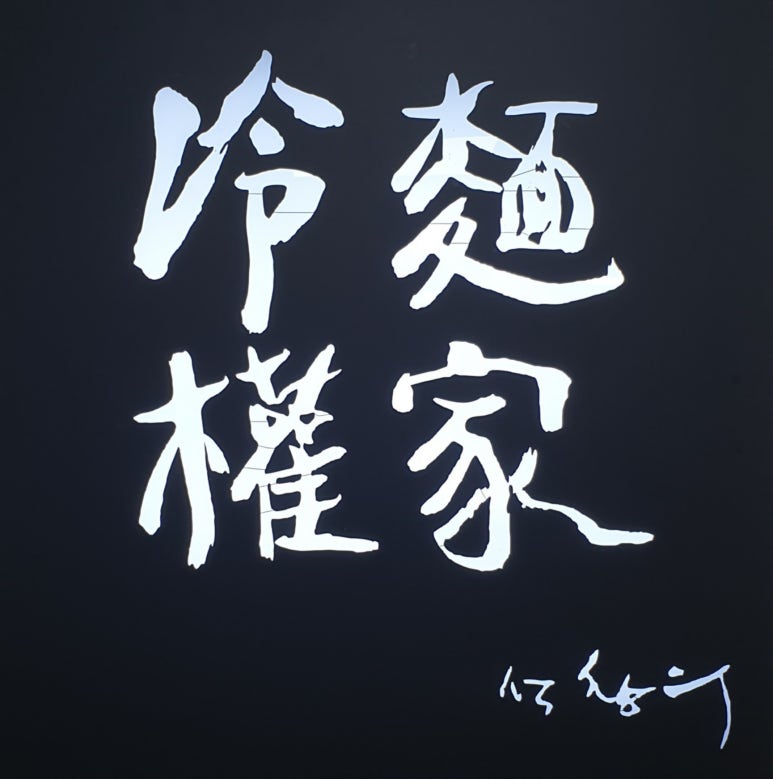 冷麵
權家